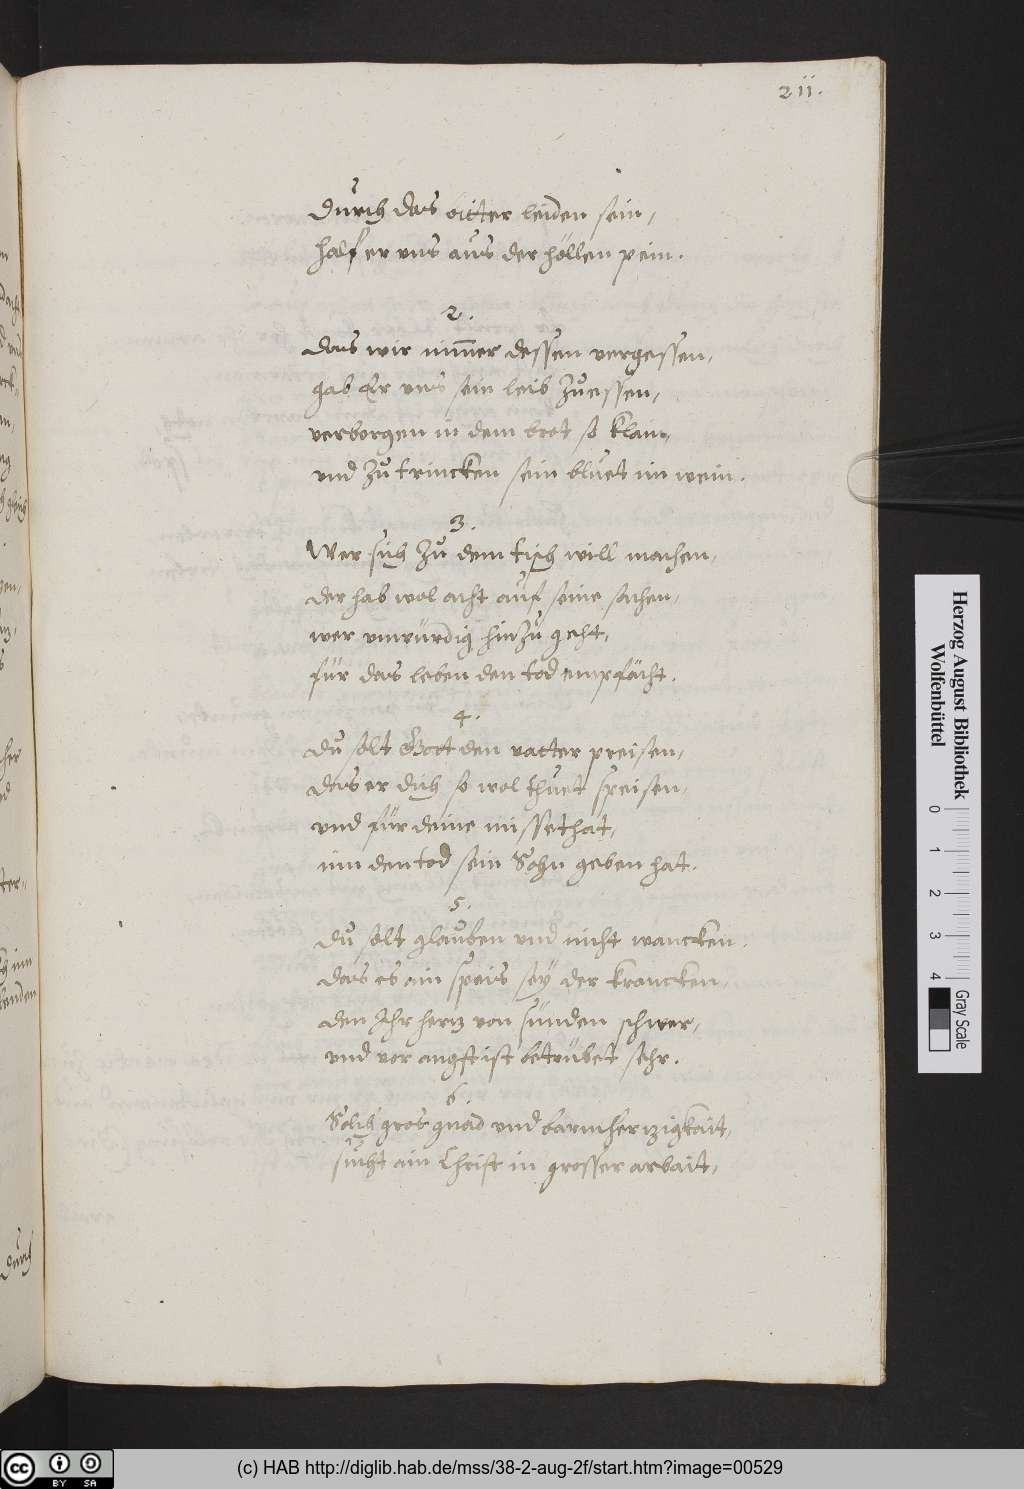 211.
Durch das bitter leiden sein,
half er vns aus der höllen pein.
2.
Das wir nim̄er dessen vergessen,
gab Er vns sein leib Zuessen,
verborgen in dem brot so klain,
vnd Zu trincken sein bluet im wein.
3.
Wer sich Zu dem tisch will machen,
der hab wol acht auf seine sachen,
wer vnwürdig hinZu geht,
für das leben den tod empfächt.
4.
Du solt Gott den vatter preisen,
das er dich so wol thuet speisen,
vnd für deine missethat,
inn den tod sein Sohn geben hat.
5.
Du solt glauben vnd nicht wancken.
das es ain speis seÿ der krancken,
den Ihr hertz von sünden schwer,
vnd vor angst ist betrübet sehr.
6.
Solch gros gnad vnd barmhertzigkait,
sucht ain Christ in grosser arbait,
Durch
Herzog August Bibliothek
Wolfenbüttel
0 1 2 3 4
Gray Scale
cc BY SA
(c) HAB http://diglib.hab.de/mss/38-2-aug-2f/start.htm?image=00529